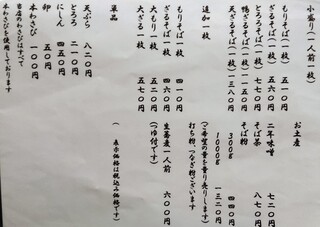 小盛り（一人前一枚）
もりそば（一枚） 五一〇円
ざるそば（一枚） 五六〇円
とろろそば（一枚） 七七〇円
鴨ざるそば（一枚） 一一五〇円
天ざるそば（一枚） 一三八〇円
追加一枚
もりそば一枚 四一〇円
ざるそば一枚 四六〇円
大もり一枚 五二〇円
大ざる一枚 五七〇円
単品
天ぷら 八二〇円
とろろ 二一〇円
にしん 四五〇円
卵 五〇円
本わさび 一〇〇円
当店のわさびはすべて
本わさびを使用しております
お土産
二年味噌 七二〇円
そば茶 八七〇円
そば粉
300g 四四〇円
1000g 一三二〇円
（ご希望の量を量り売りします）
打ち粉、つなぎ粉ございます
生蕎麦一人前 六〇〇円
（つゆ付です）
（ 表示価格は税込み価格です）